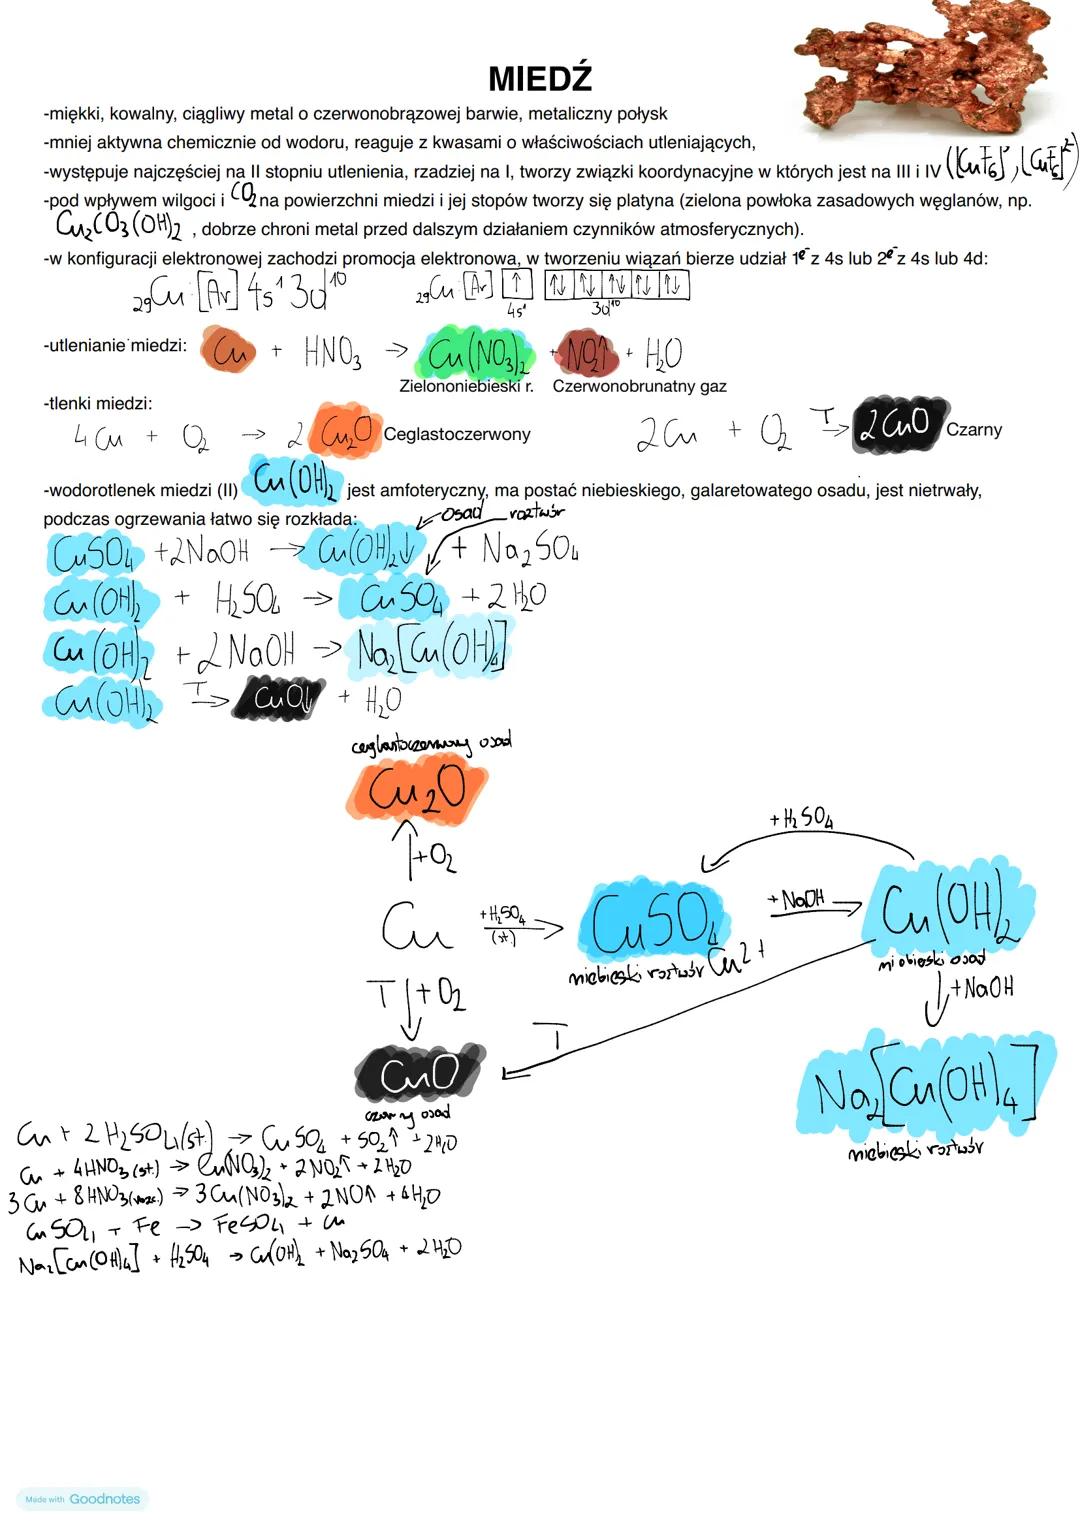 MIEDŹ
-miękki, kowalny, ciągliwy metal o czerwonobrązowej barwie, metaliczny połysk
-mniej aktywna chemicznie od wodoru, reaguje z kwasami o właściwościach utleniających,
-występuje najczęściej na II stopniu utlenienia, rzadziej na I, tworzy związki koordynacyjne w których jest na III i IV ([CuF₆]³⁻, [CuF₆]²⁻)
-pod wpływem wilgoci i CO₂ na powierzchni miedzi i jej stopów tworzy się platyna (zielona powłoka zasadowych węglanów, np.
Cu₂CO₃(OH)₂ , dobrze chroni metal przed dalszym działaniem czynników atmosferycznych).
-w konfiguracji elektronowej zachodzi promocja elektronowa, w tworzeniu wiązań bierze udział 1e⁻ z 4s lub 2e⁻ z 4s lub 4d:
₂₉Cu: [Ar] 4s¹ 3d¹⁰ ₂₉Cu: [Ar] ↑ ↑↓ ↑↓ ↑↓ ↑↓ ↑↓
4s¹ 3d¹⁰
-utlenianie miedzi: Cu + HNO₃ → Cu(NO₃)₂ + NO₂↑ + H₂O
Zielononiebieski r. Czerwonobrunatny gaz
-tlenki miedzi:
4Cu + O₂ → 2 Cu₂O Ceglastoczerwony 2Cu + O₂ T→ 2CuO Czarny
-wodorotlenek miedzi (II) Cu(OH)₂ jest amfoteryczny, ma postać niebieskiego, galaretowatego osadu, jest nietrwały,
podczas ogrzewania łatwo się rozkłada:
osad roztwór
CuSO₄ + 2NaOH → Cu(OH)₂↓ + Na₂SO₄
Cu(OH)₂ + H₂SO₄ → CuSO₄ + 2H₂O
Cu(OH)₂ + 2NaOH → Na₂[Cu(OH)₄]
Cu(OH)₂ T→ CuO↓ + H₂O
ceglastoczerwony osad
Cu₂O
+H₂SO₄
+O₂
Cu +H₂SO₄ (st.) CuSO₄ +NaOH Cu(OH)₂
niebieski roztwór Cu²⁺ niebieski osad
T +O₂ +NaOH
T
CuO Na₂[Cu(OH)₄]
czarny osad niebieski roztwór
Cu + 2H₂SO₄(st.) → CuSO₄ + SO₂↑ + 2H₂O
Cu + 4HNO₃(st.) → Cu(NO₃)₂ + 2NO₂↑ + 2H₂O
3Cu + 8HNO₃(rozc.) → 3Cu(NO₃)₂ + 2NO↑ + 4H₂O
CuSO₄ + Fe → FeSO₄ + Cu
Na₂[Cu(OH)₄] + H₂SO₄ → Cu(OH)₂ + Na₂SO₄ + 2H₂O
Made with Goodnotes